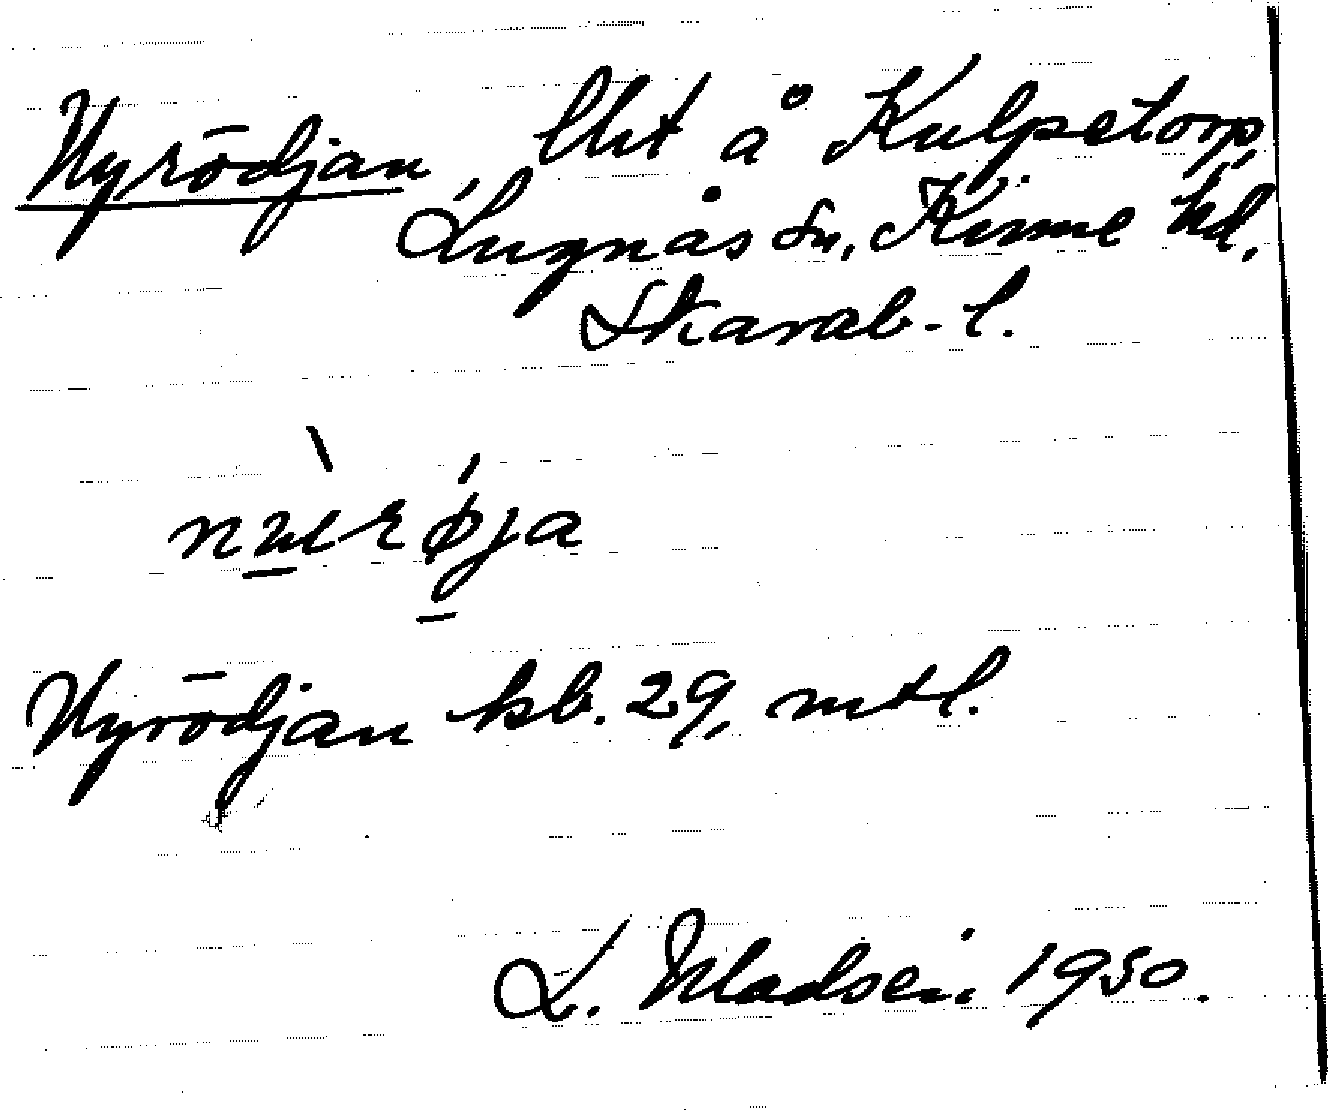 Nyrödjan, lht å Kulpetorp,
Lugnås sn, Kinne hd,
Skarab. l.
nyrøja
Nyrödjan kb. 29, mtl.
L. Madsén 1950.